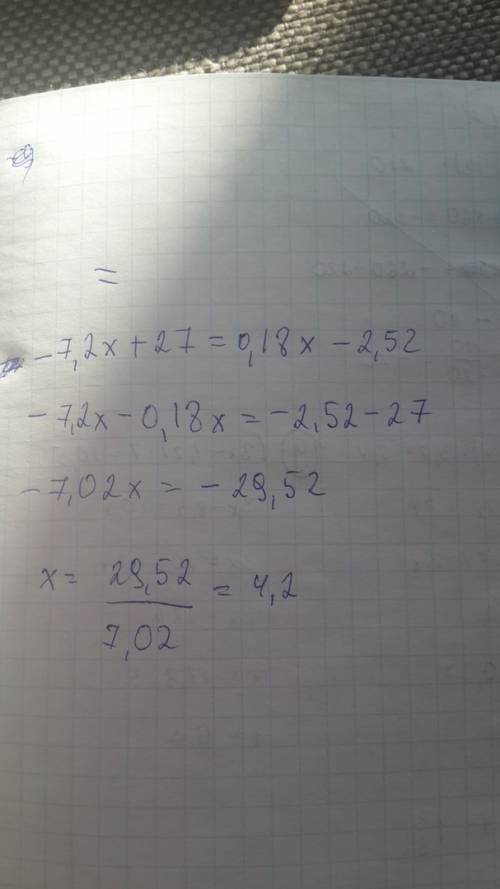 =
-7,2x+27=0,18x-2,52
-7,2x-0,18x=-2,52-27
-7,02x=-29,52
x= 29,52/7,02 = 4,2